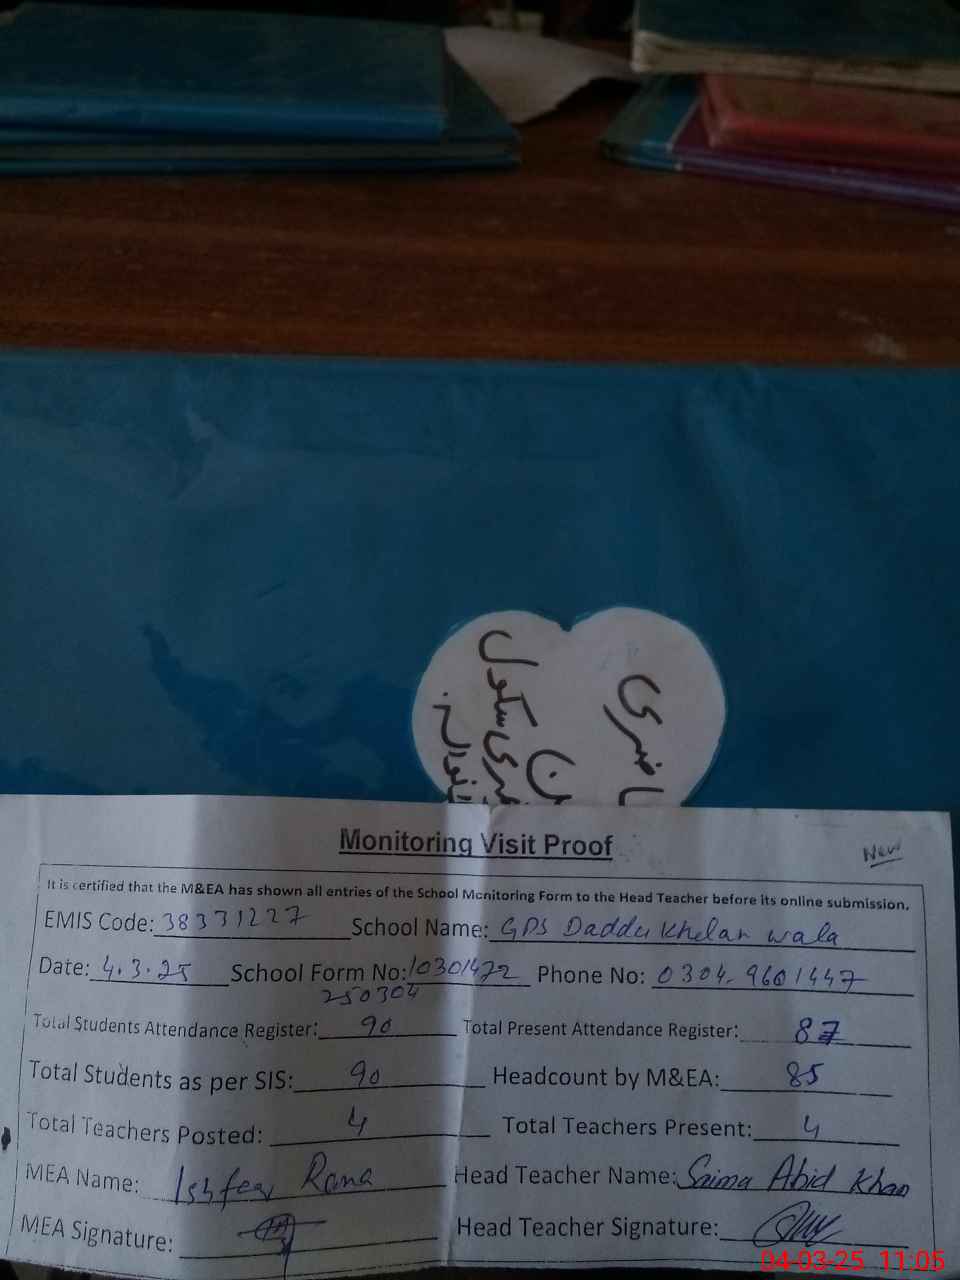 حاضری
سکول
Monitoring Visit Proof
New
It is certified that the M&EA has shown all entries of the School Monitoring Form to the Head Teacher before its online submission.
EMIS Code: 38331227 School Name: GPS Daddu Khelan wala
Date: 4.3.25 School Form No: 10301472 Phone No: 0304-9601447
250304
Total Students Attendance Register: 90 Total Present Attendance Register: 87
Total Students as per SIS: 90 Headcount by M&EA: 85
Total Teachers Posted: 4 Total Teachers Present: 4
MEA Name: Ishfaq Rana Head Teacher Name: Saima Abid Khan
MEA Signature: Head Teacher Signature:
04-03-25 11:05